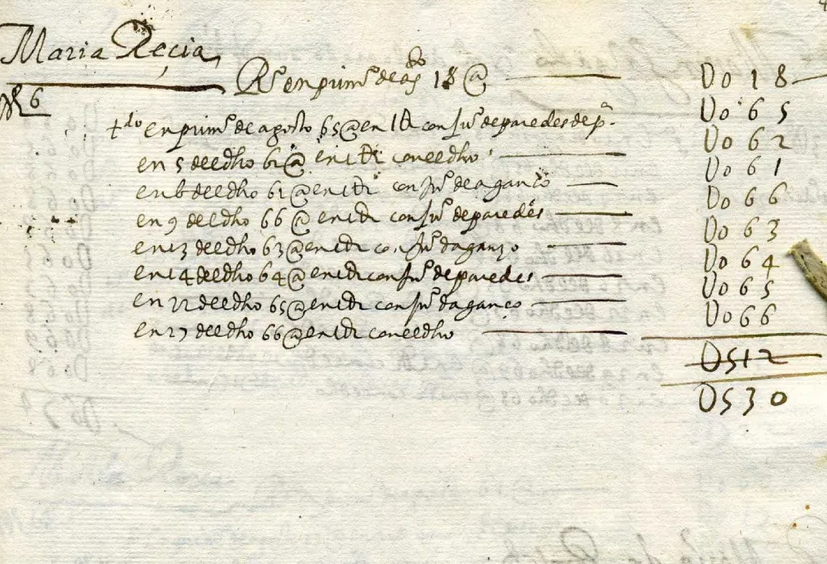 Maria Recia
Rs en prim.º de ag.º 18 @ U018
N 6
+do en prim.º de agosto 65 @ en 1 di con Ju.º de paredes de p.ª U065
en 5 de edho 62 @ en 1 di con edho U062
en 6 de edho 61 @ en 1 di con Ju.º de aganço U061
en 9 de edho 66 @ en 1 di con Ju.º de paredes U066
en 13 de edho 63 @ en 1 di con Ju.º daganzo U063
en 14 de edho 64 @ en 1 di con Ju.º de paredes U064
en 22 de edho 65 @ en 1 di con Ju.º daganço U065
en 27 de edho 66 @ en 1 di con edho U066
U512
U530